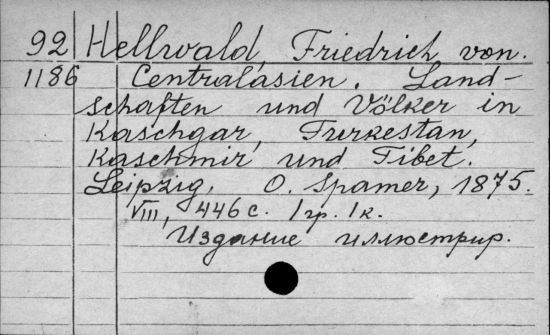 92 Hellwald, Friedrich von.
1186 Centralasien. Land-
schaften und Völker in
Kaschgar, Turkestan,
Kaschmir und Tibet.
Leipzig. O. Spamer, 1875.
VIII, 446 с. 1 гр. 1 к.
Издание иллюстрир.